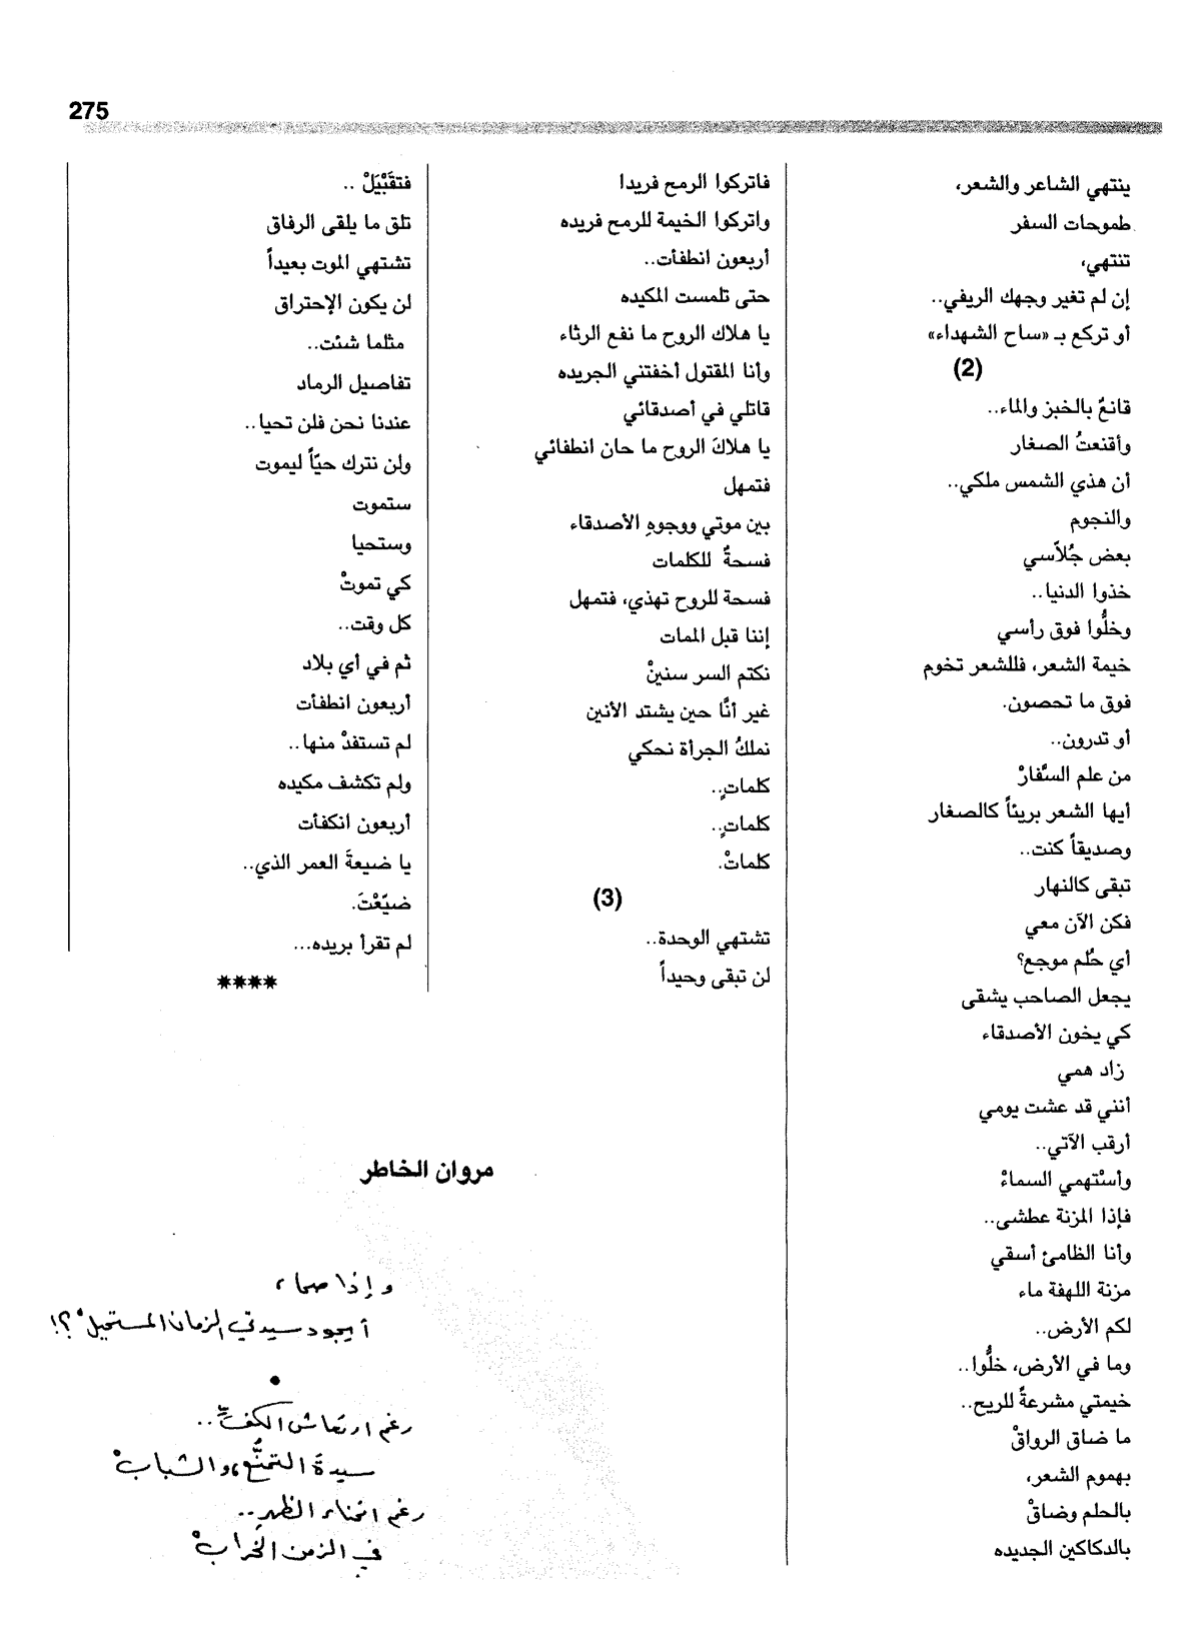 275
ينتهي الشاعر والشعر،
طموحات السفر
تنتهي،
إن لم تغير وجهك الريفي..
أو تركع بـ «ساح الشهداء»
(2)
قانعٌ بالخبز والماء..
وأقنعتُ الصغار
أن هذي الشمس ملكي..
والنجوم
بعض جُلاّسي
خذوا الدنيا..
وخلُّوا فوق رأسي
خيمة الشعر، فللشعر تخوم
فوق ما تحصون.
أو تدرون..
من علم السُّفارْ
أيها الشعر بريئاً كالصغار
وصديقاً كنت..
تبقى كالنهار
فكن الآن معي
أي حُلم موجع؟
يجعل الصاحب يشقى
كي يخون الأصدقاء
زاد همي
أنني قد عشت يومي
أرقب الآتي..
وأسْتهمي السماءْ
فإذا المزنة عطشى..
وأنا الظامئ أسقي
مزنة اللهفة ماء
لكم الأرض..
وما في الأرض، خلُّوا..
خيمتي مشرعةً للريح..
ما ضاق الرواقْ
بهموم الشعر،
بالحلم وضاقْ
بالدكاكين الجديده
فاتركوا الرمح فريدا
واتركوا الخيمة للرمح فريده
أربعون انطفأت..
حتى تلمست المكيده
يا هلاك الروح ما نفع الرثاء
وأنا المقتول أخفتني الجريده
قاتلي في أصدقائي
يا هلاكَ الروح ما حان انطفائي
فتمهل
بين موتي ووجوهِ الأصدقاء
فسحةٌ للكلمات
فسحة للروح تهذي، فتمهل
إننا قبل الممات
نكتم السر سنينْ
غير أنَّا حين يشتد الأنين
نملكُ الجرأة نحكي
كلماتٍ..
كلماتٍ..
كلماتْ.
(3)
تشتهي الوحدة..
لن تبقى وحيداً
فتقَبْيَلْ ..
تلق ما يلقى الرفاق
تشتهي الموت بعيداً
لن يكون الإحتراق
مثلما شئت..
تفاصيل الرماد
عندنا نحن فلن تحيا..
ولن نترك حيّاً ليموت
ستموت
وستحيا
كي تموتْ
كل وقت..
ثم في أي بلاد
أربعون انطفأت
لم تستفدْ منها..
ولم تكشف مكيده
أربعون انكفأت
يا ضيعةَ العمر الذي..
ضيّعْتَ.
لم تقرأ بريده...
****
مروان الخاطر
وإذا صحا ،
أيجود سيدتي الزمان المستحيلْ ؟!
•
رغم ارتعاش الكفِّ..
سيدةَ التمنُّع، والشبابْ
رغم انحناء الظهرِ..
في الزمن الخرابْ